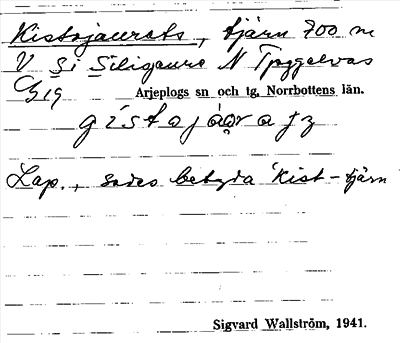 Kistojaurats, tjärn 700 m
V Si Siligaure N Tjeggelvas
C/g19
Arjeplogs sn och tg, Norrbottens län.
gistojáoratz
Lap., sades betyda 'Kist-tjärn'
Sigvard Wallström, 1941.